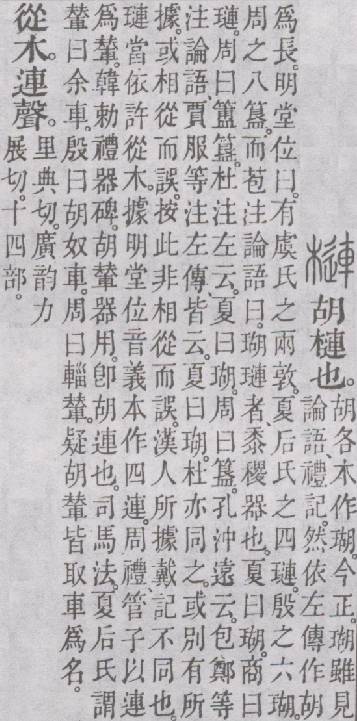 槤 胡槤也。
胡各本作瑚。今正。瑚雖見
論語、禮記。然依左傳作胡
爲長。明堂位曰。有虞氏之兩敦。夏后氏之四璉。殷之六瑚。
周之八簋。而苞注論語曰。瑚璉者、黍稷器也。夏曰瑚。商曰
璉。周曰簠簋。杜注左云。夏曰瑚。周曰簋。孔沖遠云。包鄭等
注論語賈服等注左傳皆云。夏曰瑚。杜亦同之。或別有所
據。或相從而誤。按此非相從而誤。漢人所據戴記不同也。
璉當依許從木。據明堂位音義本作四連。周禮、管子以連
爲輦。韓勑禮器碑。胡輦器用。卽胡連也。司馬法。夏后氏謂
輦曰余車。殷曰胡奴車。周曰輜輦。疑胡輦皆取車爲名。
從木。連聲。
里典切。廣韵力
展切。十四部。